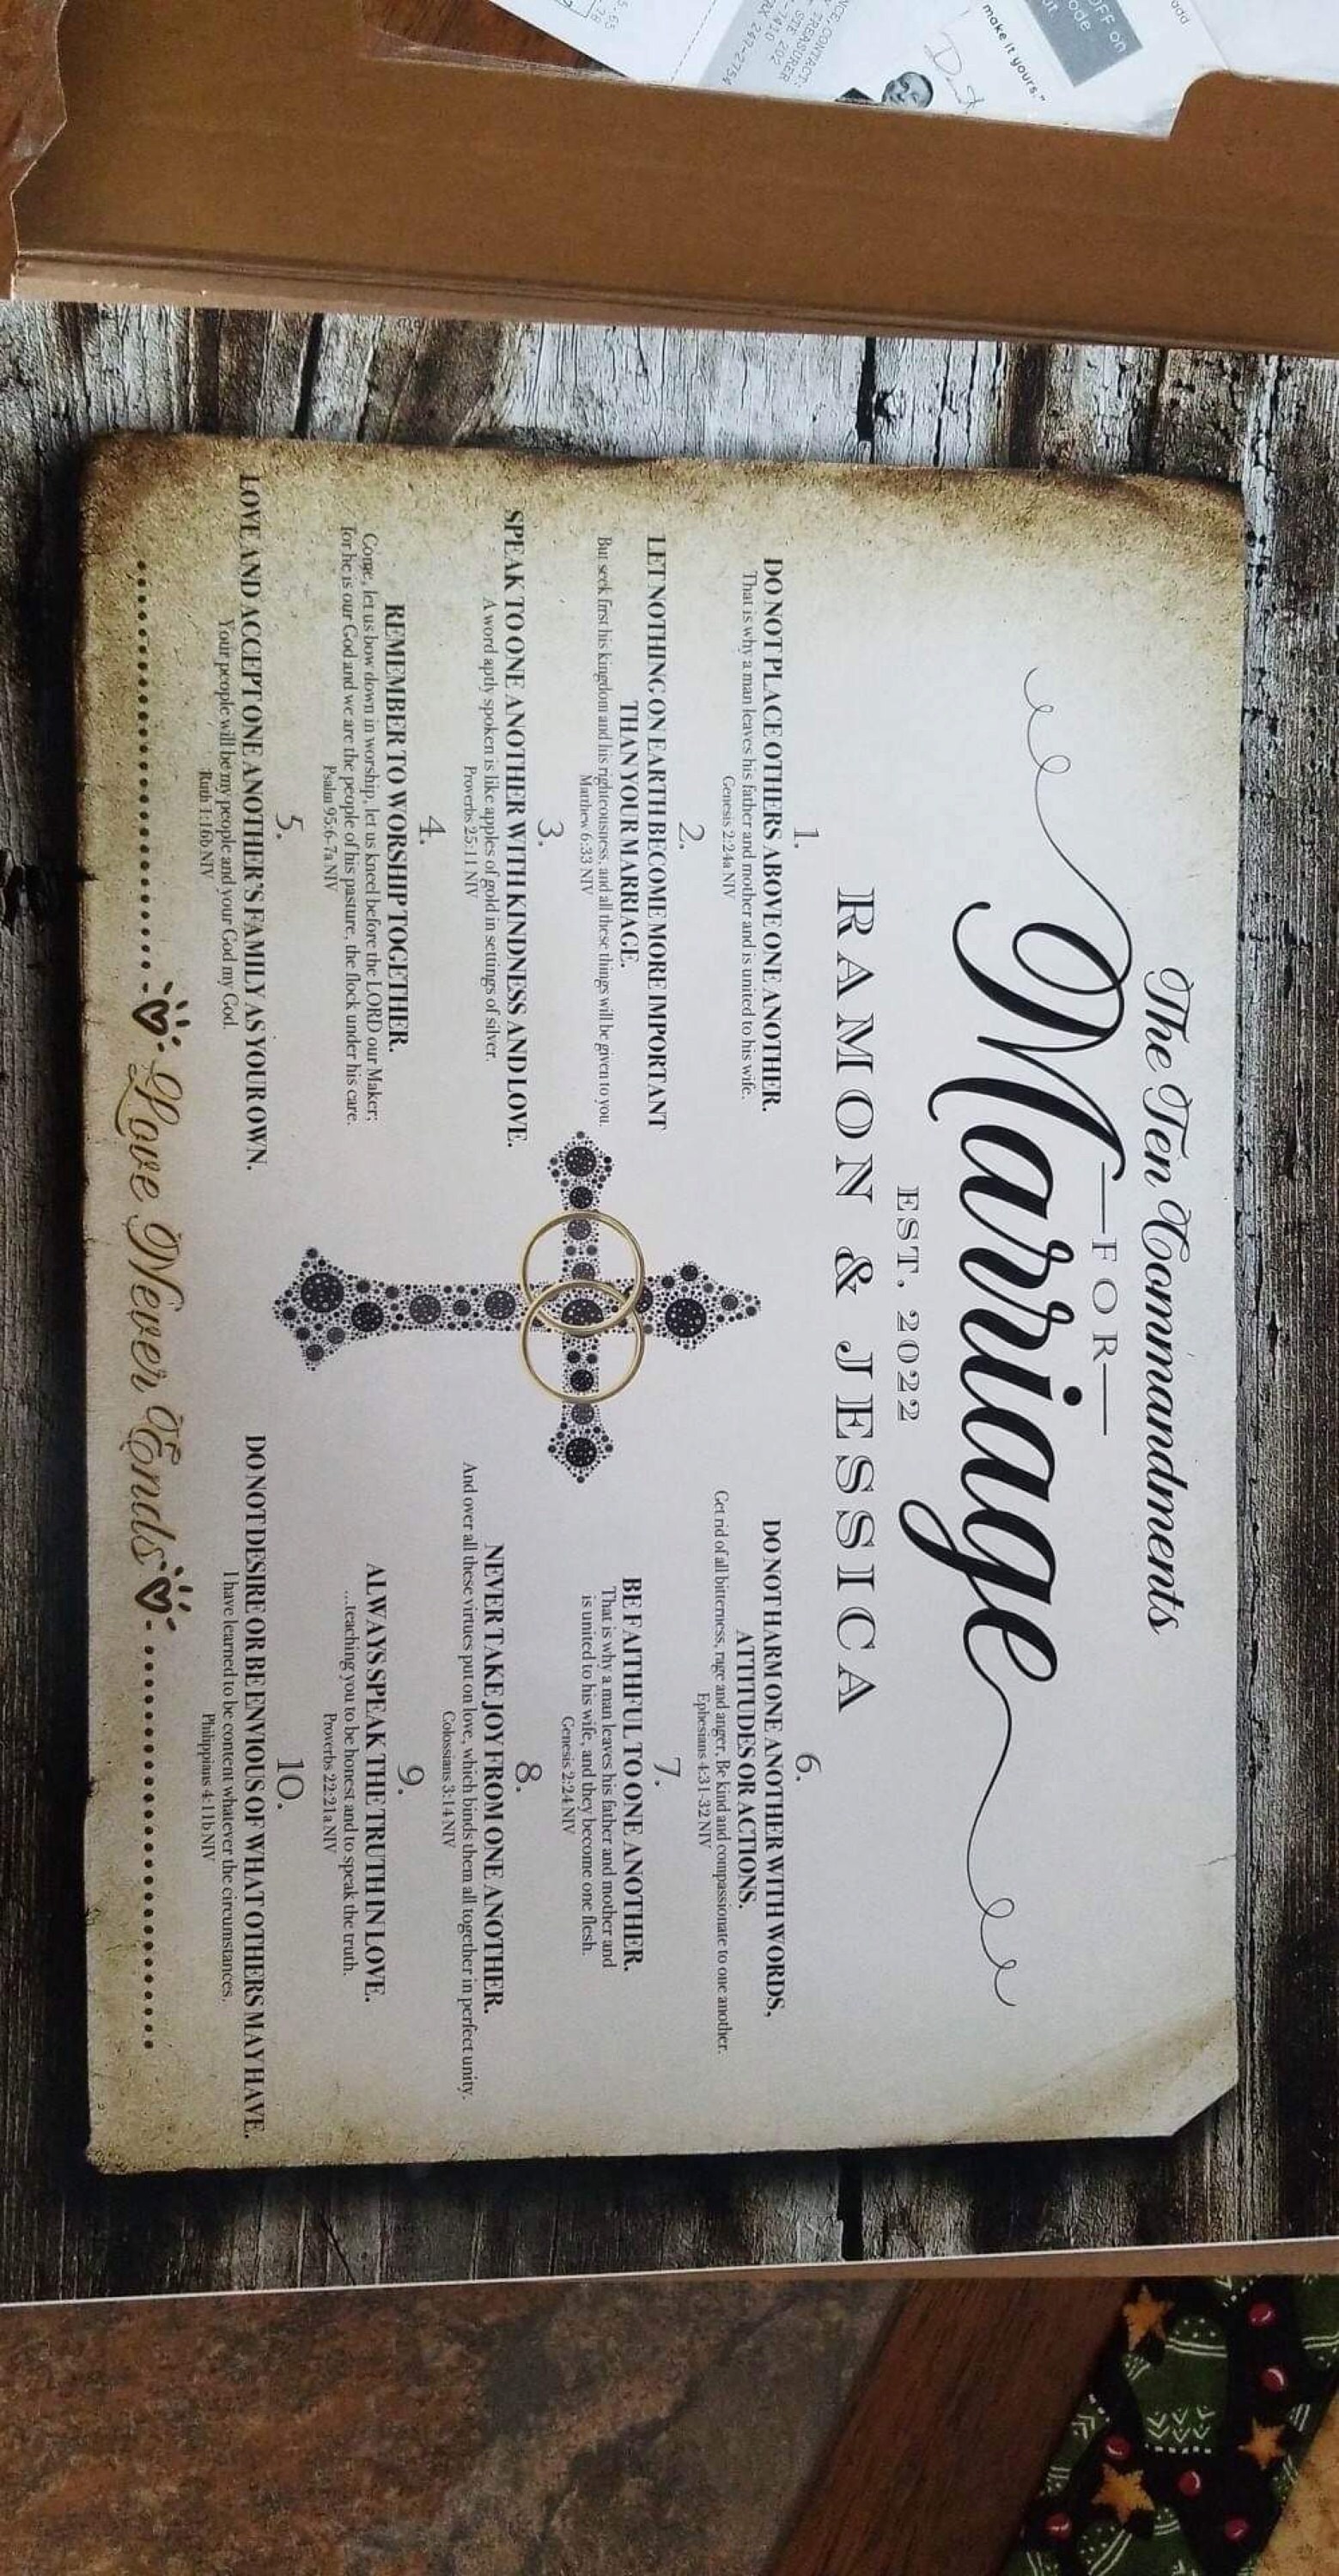 The Ten Commandments
FOR
Marriage
EST. 2022
RAMON & JESSICA
1.
DO NOT PLACE OTHERS ABOVE ONE ANOTHER.
That is why a man leaves his father and mother and is united to his wife.
Genesis 2:24a NIV
2.
LET NOTHING ON EARTH BECOME MORE IMPORTANT
THAN YOUR MARRIAGE.
But seek first his kingdom and his righteousness, and all these things will be given to you.
Matthew 6:33 NIV
3.
SPEAK TO ONE ANOTHER WITH KINDNESS AND LOVE.
A word aptly spoken is like apples of gold in settings of silver.
Proverbs 25:11 NIV
4.
REMEMBER TO WORSHIP TOGETHER.
Come, let us bow down in worship, let us kneel before the LORD our Maker;
for he is our God and we are the people of his pasture, the flock under his care.
Psalm 95:6-7a NIV
5.
LOVE AND ACCEPT ONE ANOTHER'S FAMILY AS YOUR OWN.
Your people will be my people and your God my God.
Ruth 1:16b NIV
6.
DO NOT HARM ONE ANOTHER WITH WORDS,
ATTITUDES OR ACTIONS.
Get rid of all bitterness, rage and anger. Be kind and compassionate to one another.
Ephesians 4:31-32 NIV
7.
BE FAITHFUL TO ONE ANOTHER.
That is why a man leaves his father and mother and
is united to his wife, and they become one flesh.
Genesis 2:24 NIV
8.
NEVER TAKE JOY FROM ONE ANOTHER.
And over all these virtues put on love, which binds them all together in perfect unity.
Colossians 3:14 NIV
9.
ALWAYS SPEAK THE TRUTH IN LOVE.
...teaching you to be honest and to speak the truth.
Proverbs 22:21a NIV
10.
DO NOT DESIRE OR BE ENVIOUS OF WHAT OTHERS MAY HAVE.
I have learned to be content whatever the circumstances.
Philippians 4:11b NIV
Love Never Ends
add
OFF on
ode
make it yours."
CONTACT:
TREASURER
STE 202
7410
247-2754